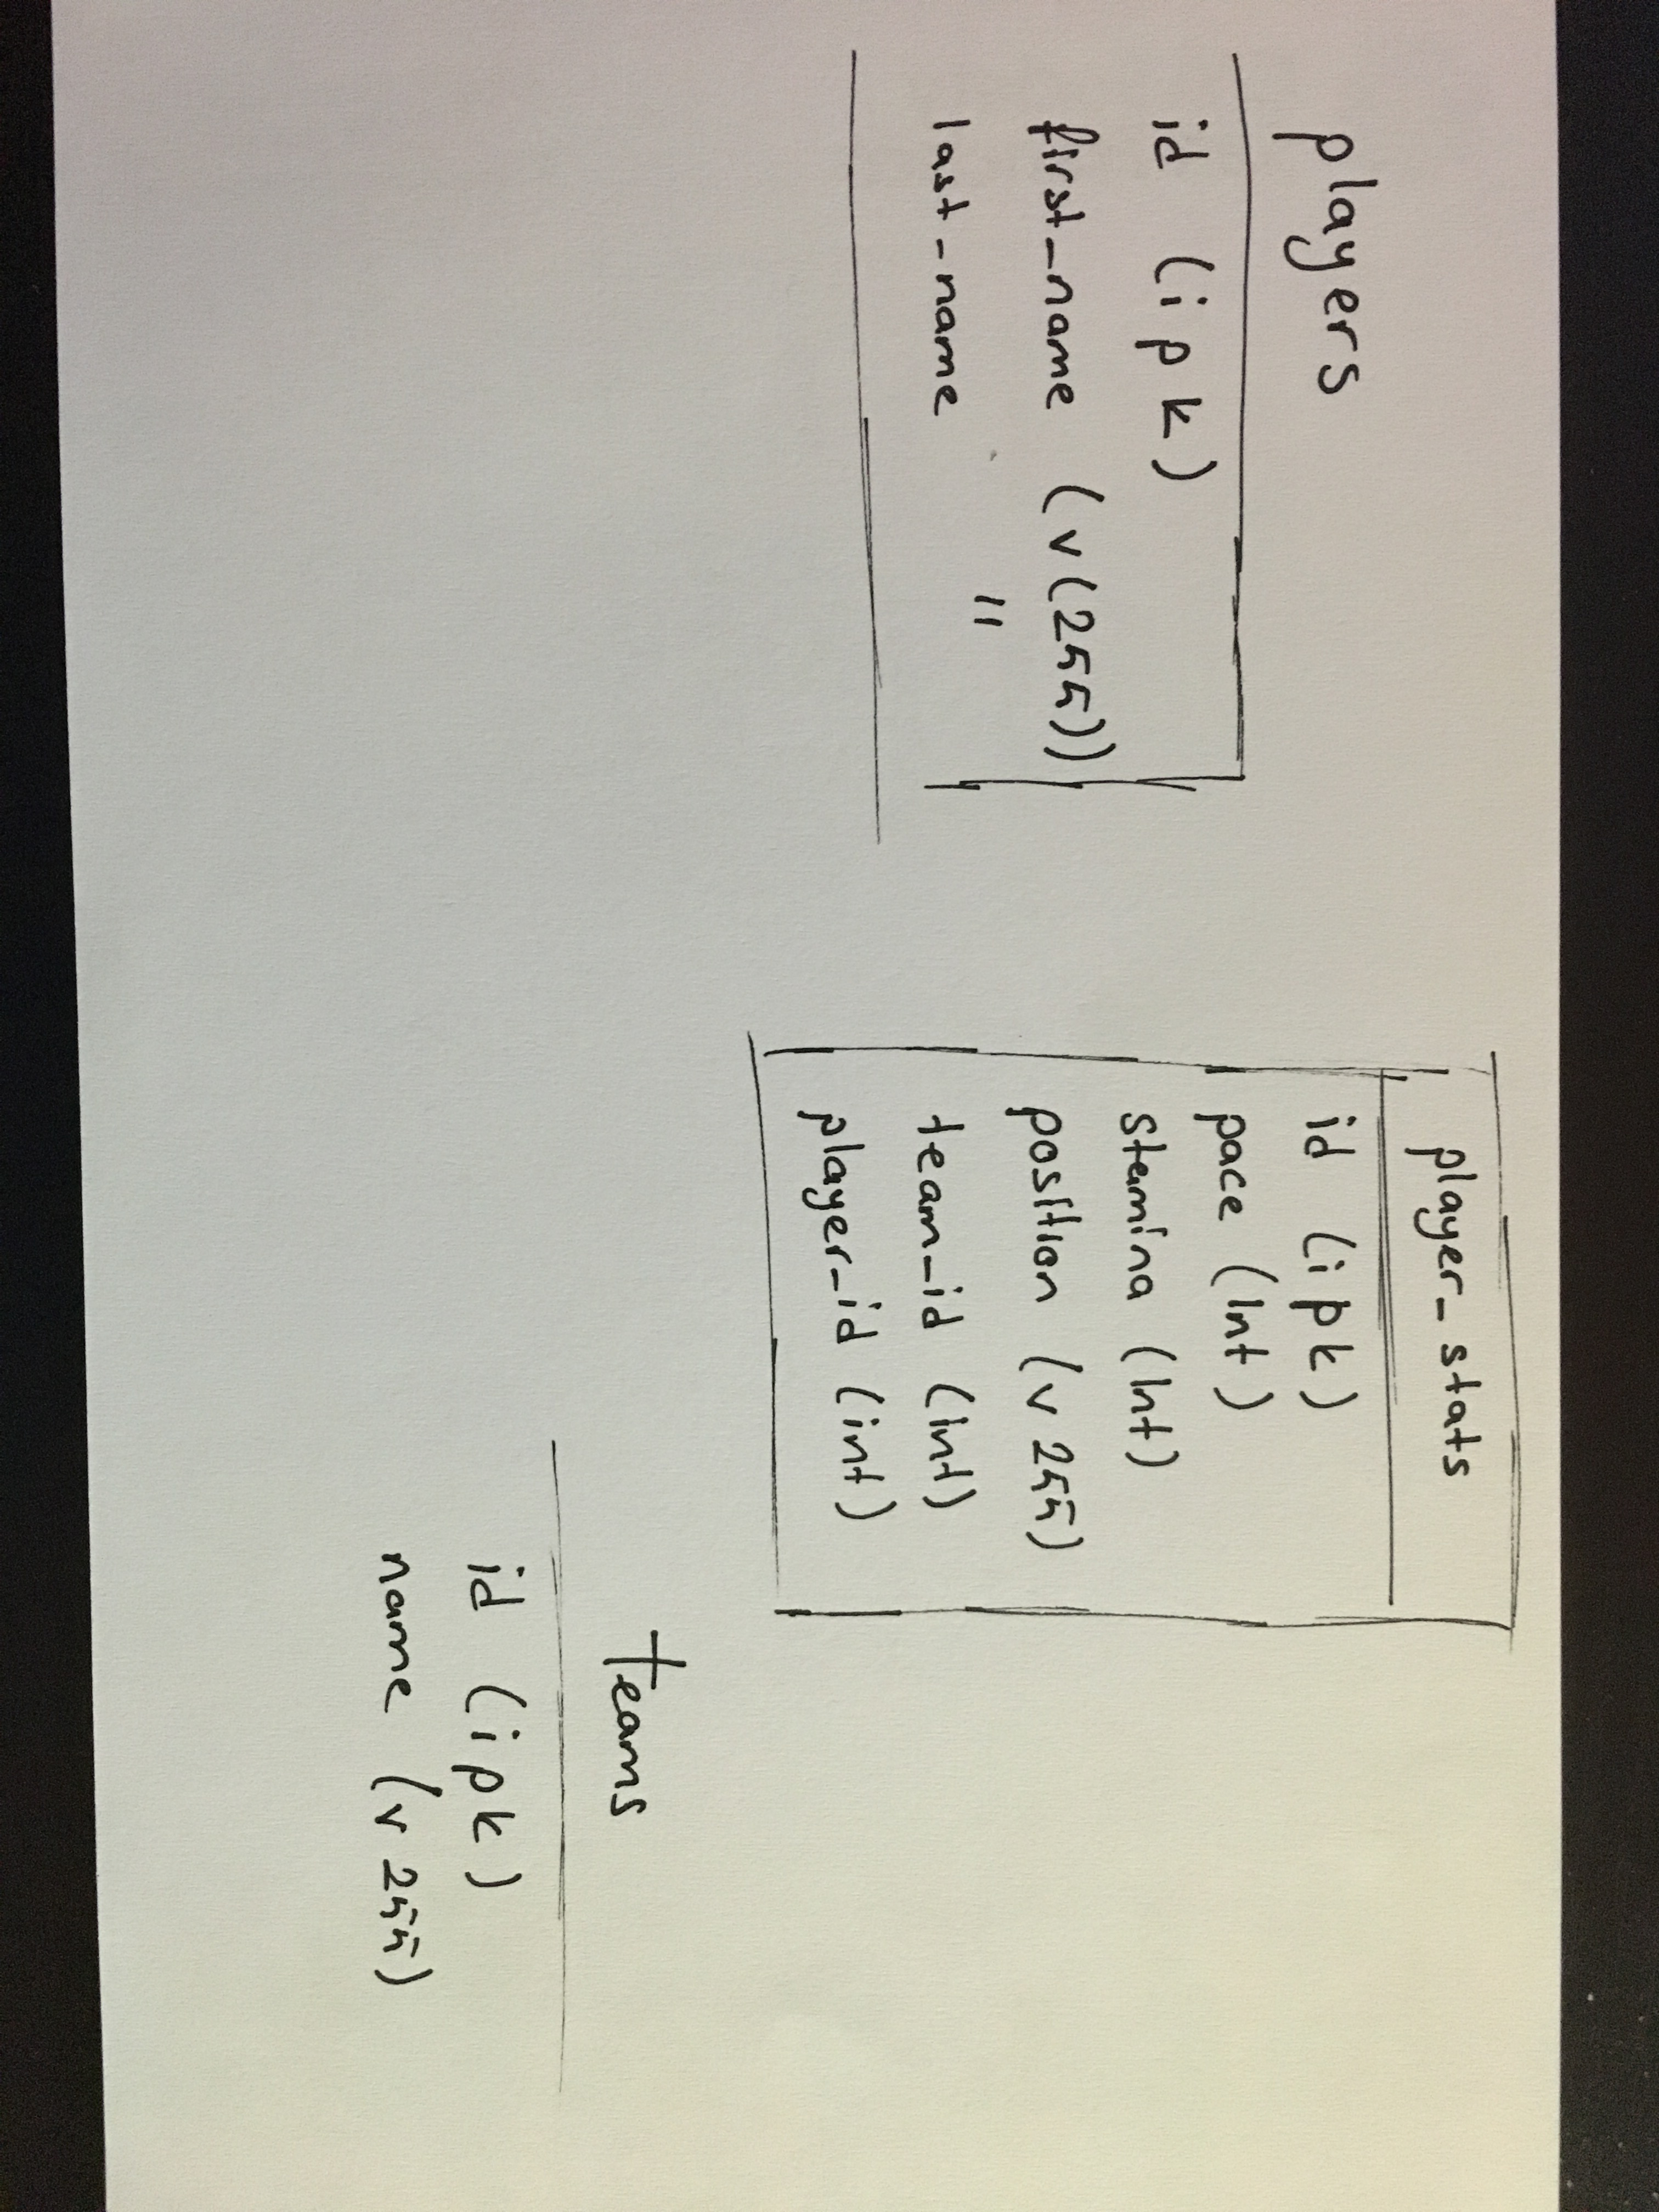 players
id (ipk)
first_name (v(255))
last-name "
player_stats
id (ipk)
pace (int)
stamina (int)
position (v 255)
team_id (int)
player_id (int)
teams
id (ipk)
name (v 255)